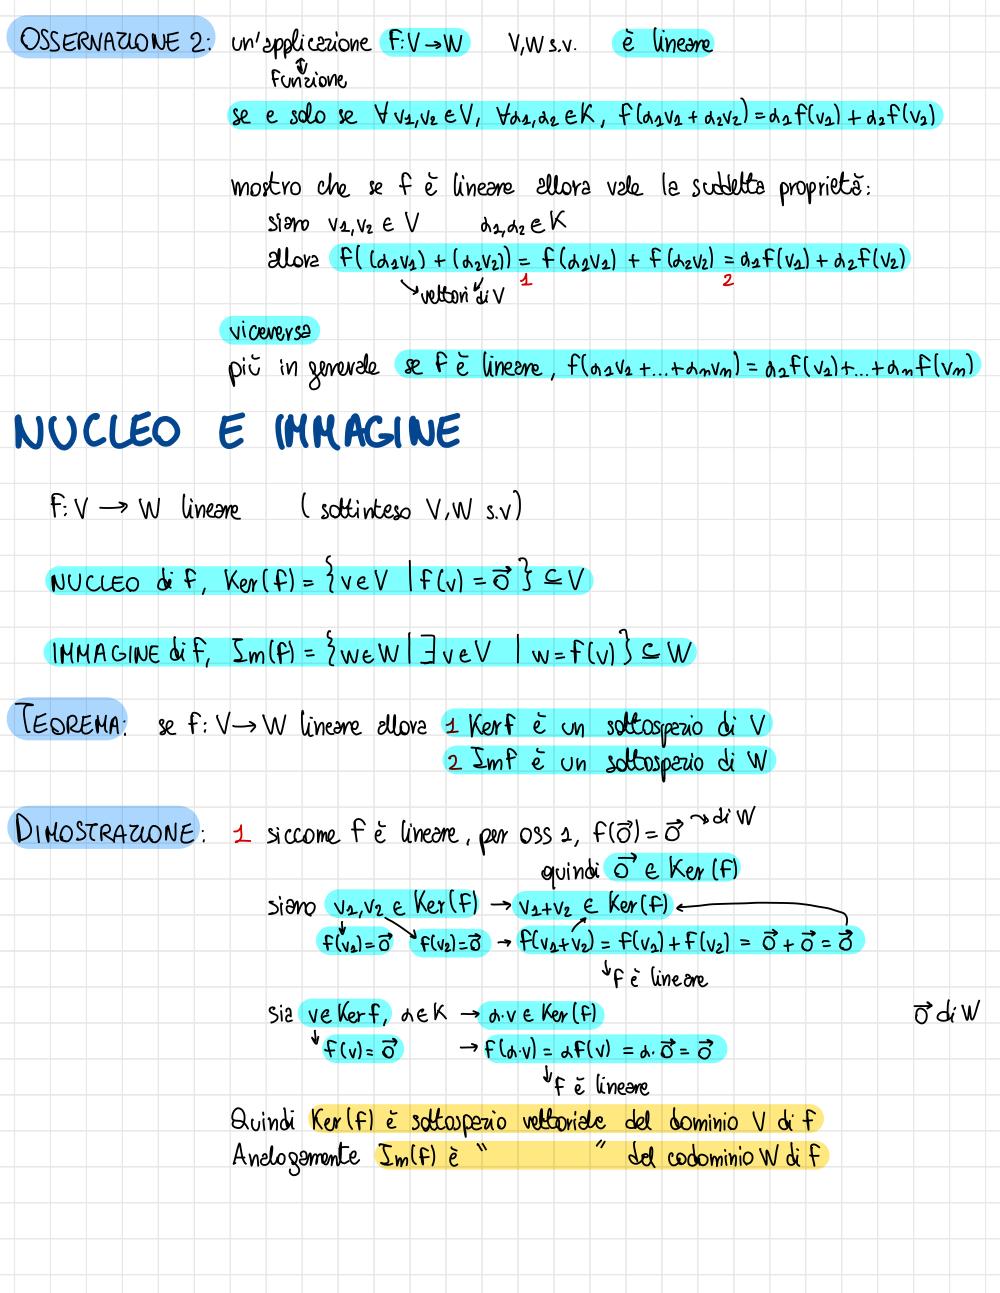 OSSERVAZIONE 2: un'applicazione F: V → W V, W s.v. è lineare
↕
Funzione
se e solo se ∀ v1, v2 ∈ V, ∀ α1, α2 ∈ K, f(α1v1 + α2v2) = α1f(v1) + α2f(v2)
mostro che se f è lineare allora vale la suddetta proprietà:
siano v1, v2 ∈ V α1, α2 ∈ K
allora f((α1v1) + (α2v2)) = f(α1v1) + f(α2v2) = α1f(v1) + α2f(v2)
1 2
vettori di V
viceversa
più in generale se f è lineare, f(α1v1 + ... + αnvn) = α1f(v1) + ... + αnf(vn)
NUCLEO E IMMAGINE
F: V → W lineare (sottinteso V, W s.v)
NUCLEO di f, Ker(f) = {v ∈ V | f(v) = 0⃗} ⊆ V
IMMAGINE di f, Im(f) = {w ∈ W | ∃ v ∈ V | w = f(v)} ⊆ W
TEOREMA: se f: V → W lineare allora 1 Ker f è un sottospazio di V
2 Im f è un sottospazio di W
DIMOSTRAZIONE: 1 siccome f è lineare, per oss 1, f(0⃗) = 0⃗ → di W
quindi 0⃗ ∈ Ker(f)
siano v1, v2 ∈ Ker(f) → v1+v2 ∈ Ker(f)
f(v1) = 0⃗ f(v2) = 0⃗ → f(v1+v2) = f(v1) + f(v2) = 0⃗ + 0⃗ = 0⃗
↓ f è lineare
sia v ∈ Ker f, α ∈ K → α·v ∈ Ker(f) 0⃗ di W
↓ f(v) = 0⃗ → f(α·v) = αf(v) = α·0⃗ = 0⃗
↓ f è lineare
Quindi Ker(f) è sottospazio vettoriale del dominio V di f
Analogamente Im(f) è " " del codominio W di f